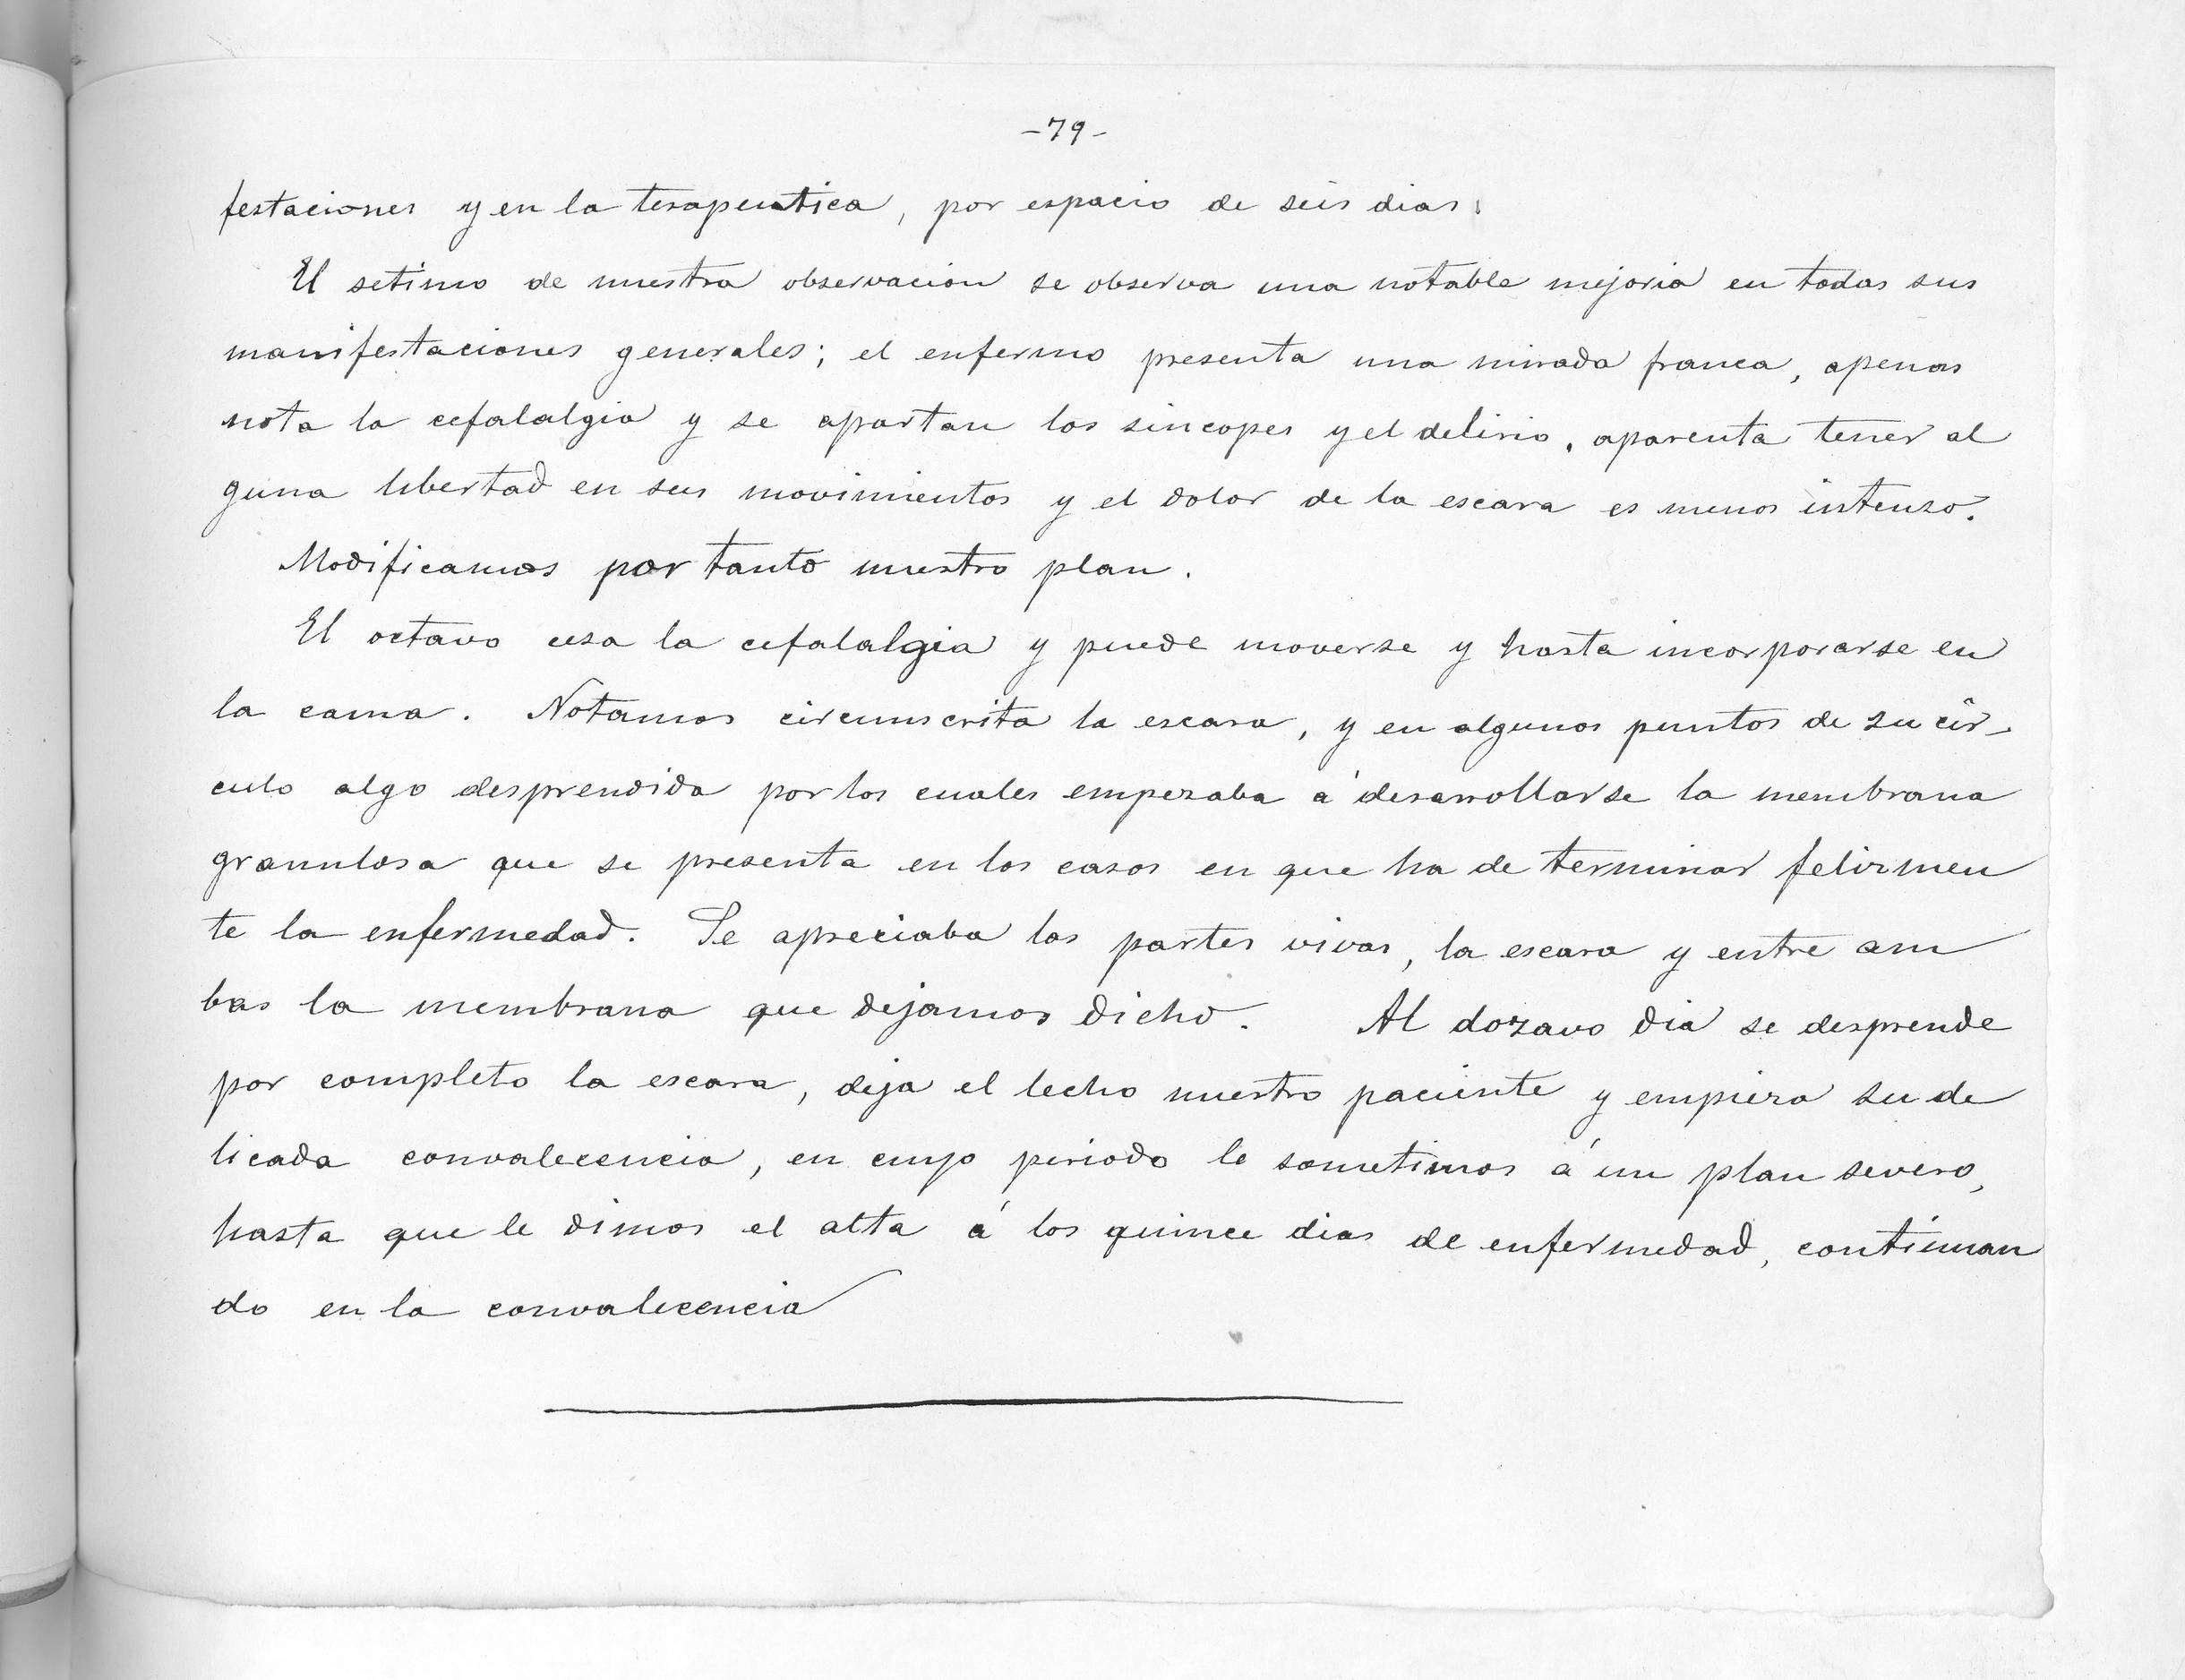 -79-
festaciones y en la terapeutica, por espacio de seis dias.
El setimo de nuestra observacion se observa una notable mejoria en todas sus
manifestaciones generales; el enfermo presenta una mirada franca, apenas
nota la cefalalgia y se apartan los sincopes y el delirio, aparenta tener al
guna libertad en sus movimientos y el dolor de la escara es menos intenso.
Modificamos por tanto nuestro plan.
El octavo cesa la cefalalgia y puede moverse y hasta incorporarse en
la cama. Notamos circumscrita la escara, y en algunos puntos de su cir-
culo algo desprendida por los cuales empezaba á desarrollarse la membrana
granulosa que se presenta en los casos en que ha de terminar felizmen
te la enfermedad. Se apreciaba las partes vivas, la escara y entre am
bas la membrana que dejamos dicho. Al dozavo dia se desprende
por completo la escara, deja el lecho nuestro paciente y empieza su de
licada convalecencia, en cuyo periodo le sometimos á un plan severo,
hasta que le dimos el alta á los quince dias de enfermedad, continuan
do en la convalecencia